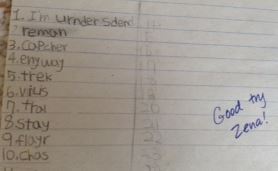 1. I'm urnder sdem
2 remon
3. capcher
4. enyway
5. trek
6. vius
7. tral
8 stay
9 flayr
10. chas
Good try
Zena!